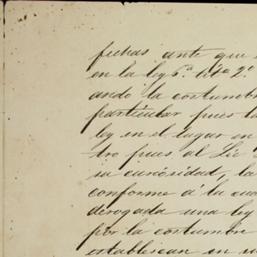 fichas ante que
en la ley 6ª tit 2º
ando la costumbr
particular pues la
ley en el lugar en
tro pues al Lic
su curiosidad, la
conforme á la cua
derogada una ley
por la costumbre
establescan en su